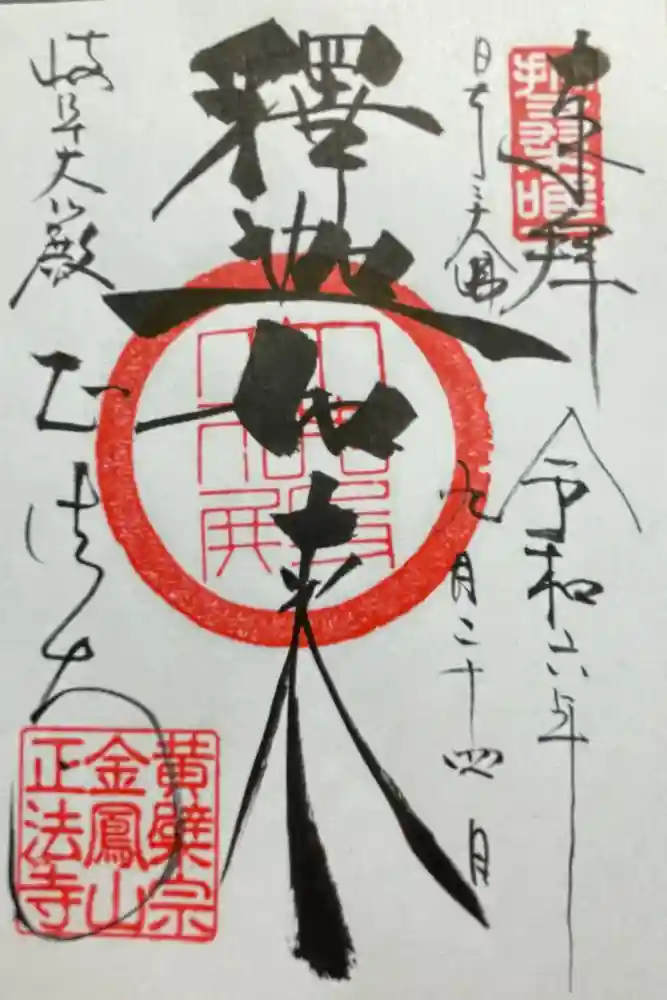 奉拝
令和六年
日本三大佛
九月二十四日
釋迦如来
岐阜大仏殿
正法寺
黄檗宗
金鳳山
正法寺